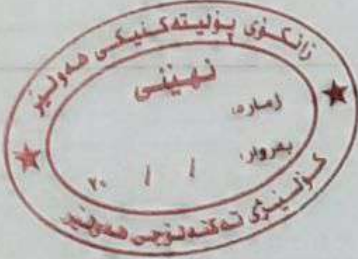 زانكۆی پۆلیتەكنیكی هەولێر
نهێنی
ژمارە:
بەروار:
٢٠ / /
كۆلێژی تەكنەلۆجی هەولێر